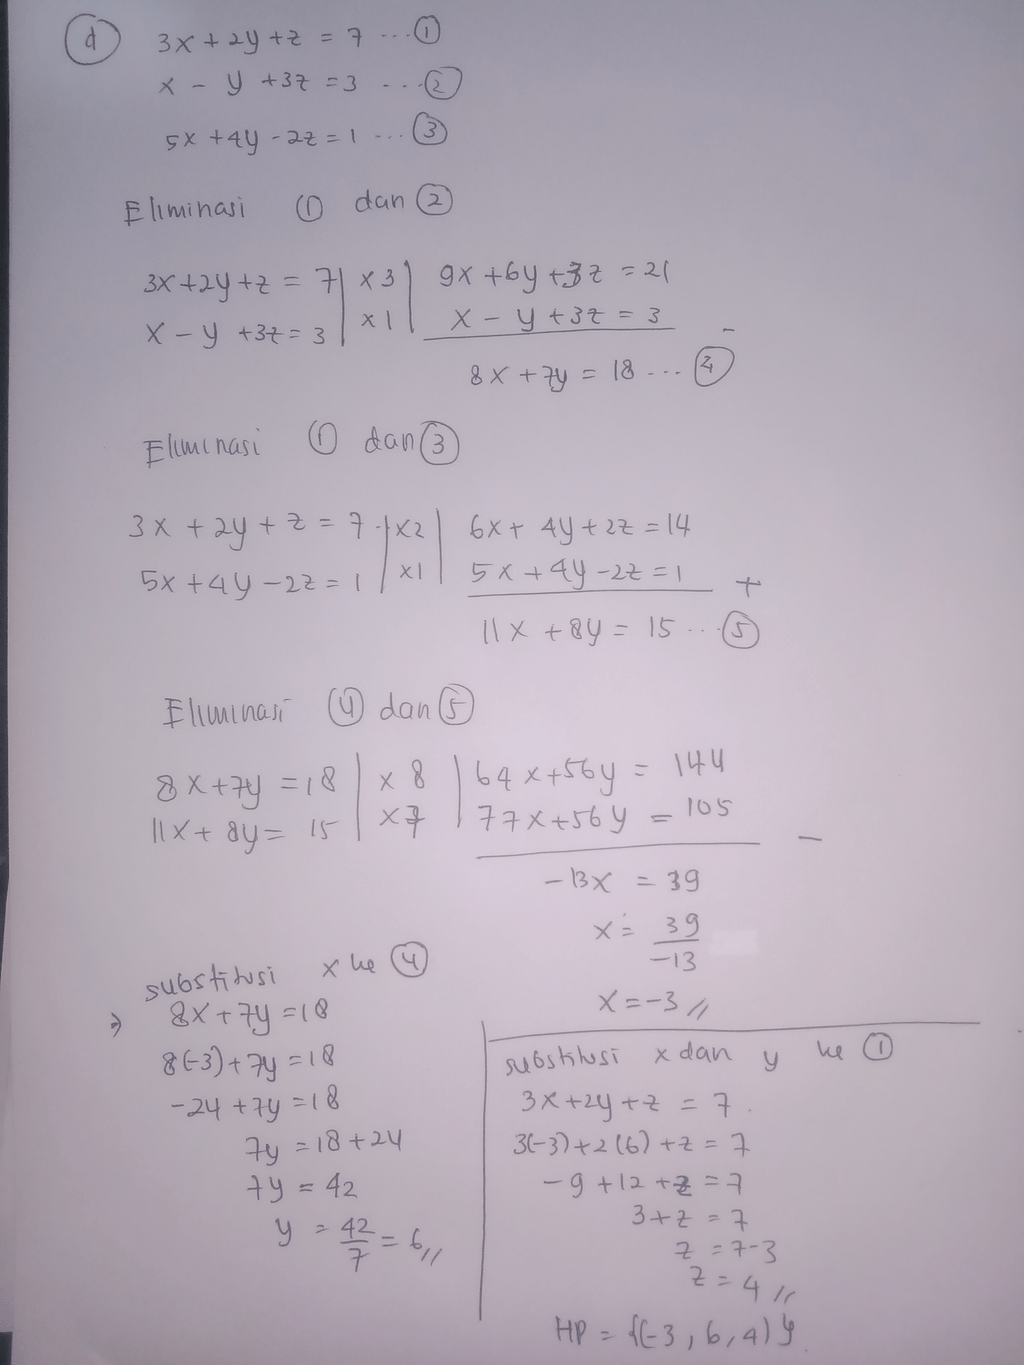 (d) 3x + 2y + z = 7 ... ①
x - y + 3z = 3 ... ②
5x + 4y - 2z = 1 ... ③
Eliminasi ① dan ②
3x + 2y + z = 7 | x 3 | 9x + 6y + 3z = 21
x - y + 3z = 3 | x 1 | x - y + 3z = 3 -
8x + 7y = 18 ... ④
Eliminasi ① dan ③
3x + 2y + z = 7 | x 2 | 6x + 4y + 2z = 14
5x + 4y - 2z = 1 | x 1 | 5x + 4y - 2z = 1 +
11x + 8y = 15 ... ⑤
Eliminasi ④ dan ⑤
8x + 7y = 18 | x 8 | 64x + 56y = 144
11x + 8y = 15 | x 7 | 77x + 56y = 105 -
-13x = 39
x = 39/-13
x = -3 //
substitusi x ke ④
⇒ 8x + 7y = 18
8(-3) + 7y = 18
-24 + 7y = 18
7y = 18 + 24
7y = 42
y = 42/7 = 6 //
substitusi x dan y ke ①
3x + 2y + z = 7
3(-3) + 2(6) + z = 7
-9 + 12 + z = 7
3 + z = 7
z = 7 - 3
z = 4 //
HP = {(-3, 6, 4)}